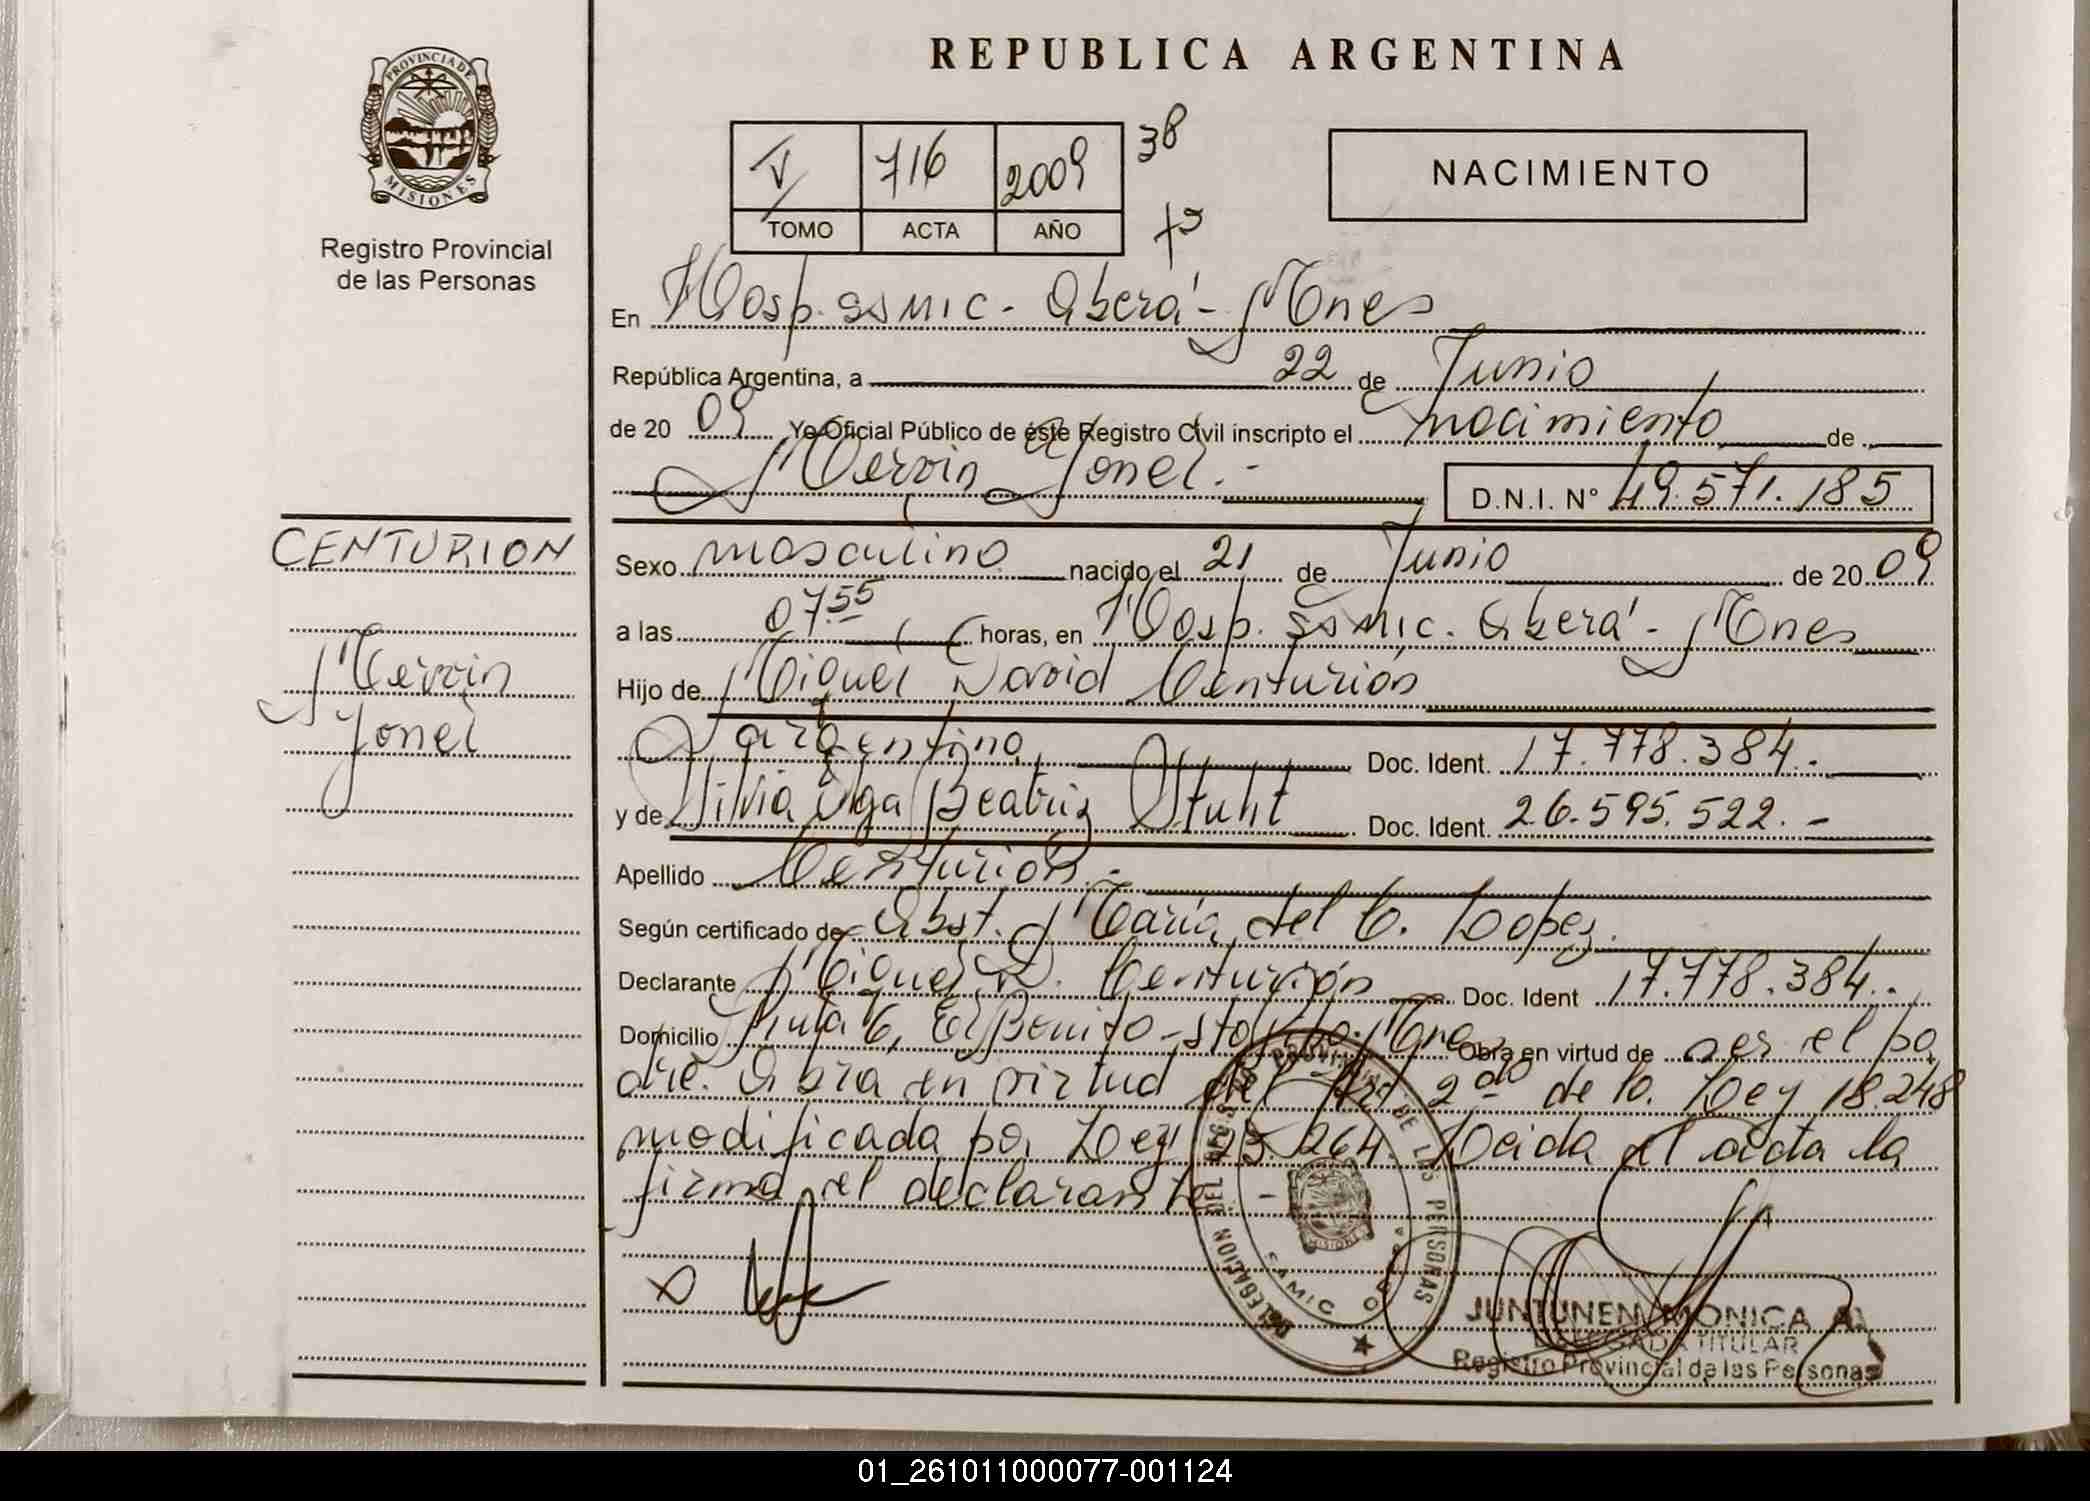 REPUBLICA ARGENTINA
PROVINCIA DE
MISIONES
Registro Provincial
de las Personas
V 716 2009 38
TOMO ACTA AÑO
NACIMIENTO
En Hosp. SAMIC - Oberá - Mnes
República Argentina, a 22 de Junio
de 20 09 Yo Oficial Público de éste Registro Civil inscripto el nacimiento de
Mervin Jonel.- D.N.I. N° 49.571.185
CENTURION
Mervin
Jonel
Sexo masculino nacido el 21 de Junio de 20 09
a las 07.55 horas, en Hosp. SAMIC. Oberá - Mnes
Hijo de Miguel David Centurión
argentino Doc. Ident. 17.778.384.-
y de Silvia Olga Beatriz Stuht Doc. Ident. 26.595.522.-
Apellido Centurión.-
Según certificado de Obst. María del C. Lopez.
Declarante Miguel D. Centurión Doc. Ident 17.778.384.-
Domicilio Ruta 6, Mnes Obra en virtud de ser el pa
dre. Obra en virtud del Art 2do de la Ley 18.248
modificada por Ley 23.264. Leida el acta la
firma el declarante
DELEGACION DEL REG. PROVINCIAL DE LAS PERSONAS
MISIONES
SAMIC OBERA
JUNTUNEN MONICA A.
DELEGADA TITULAR
Registro Provincial de las Personas
01_261011000077-001124